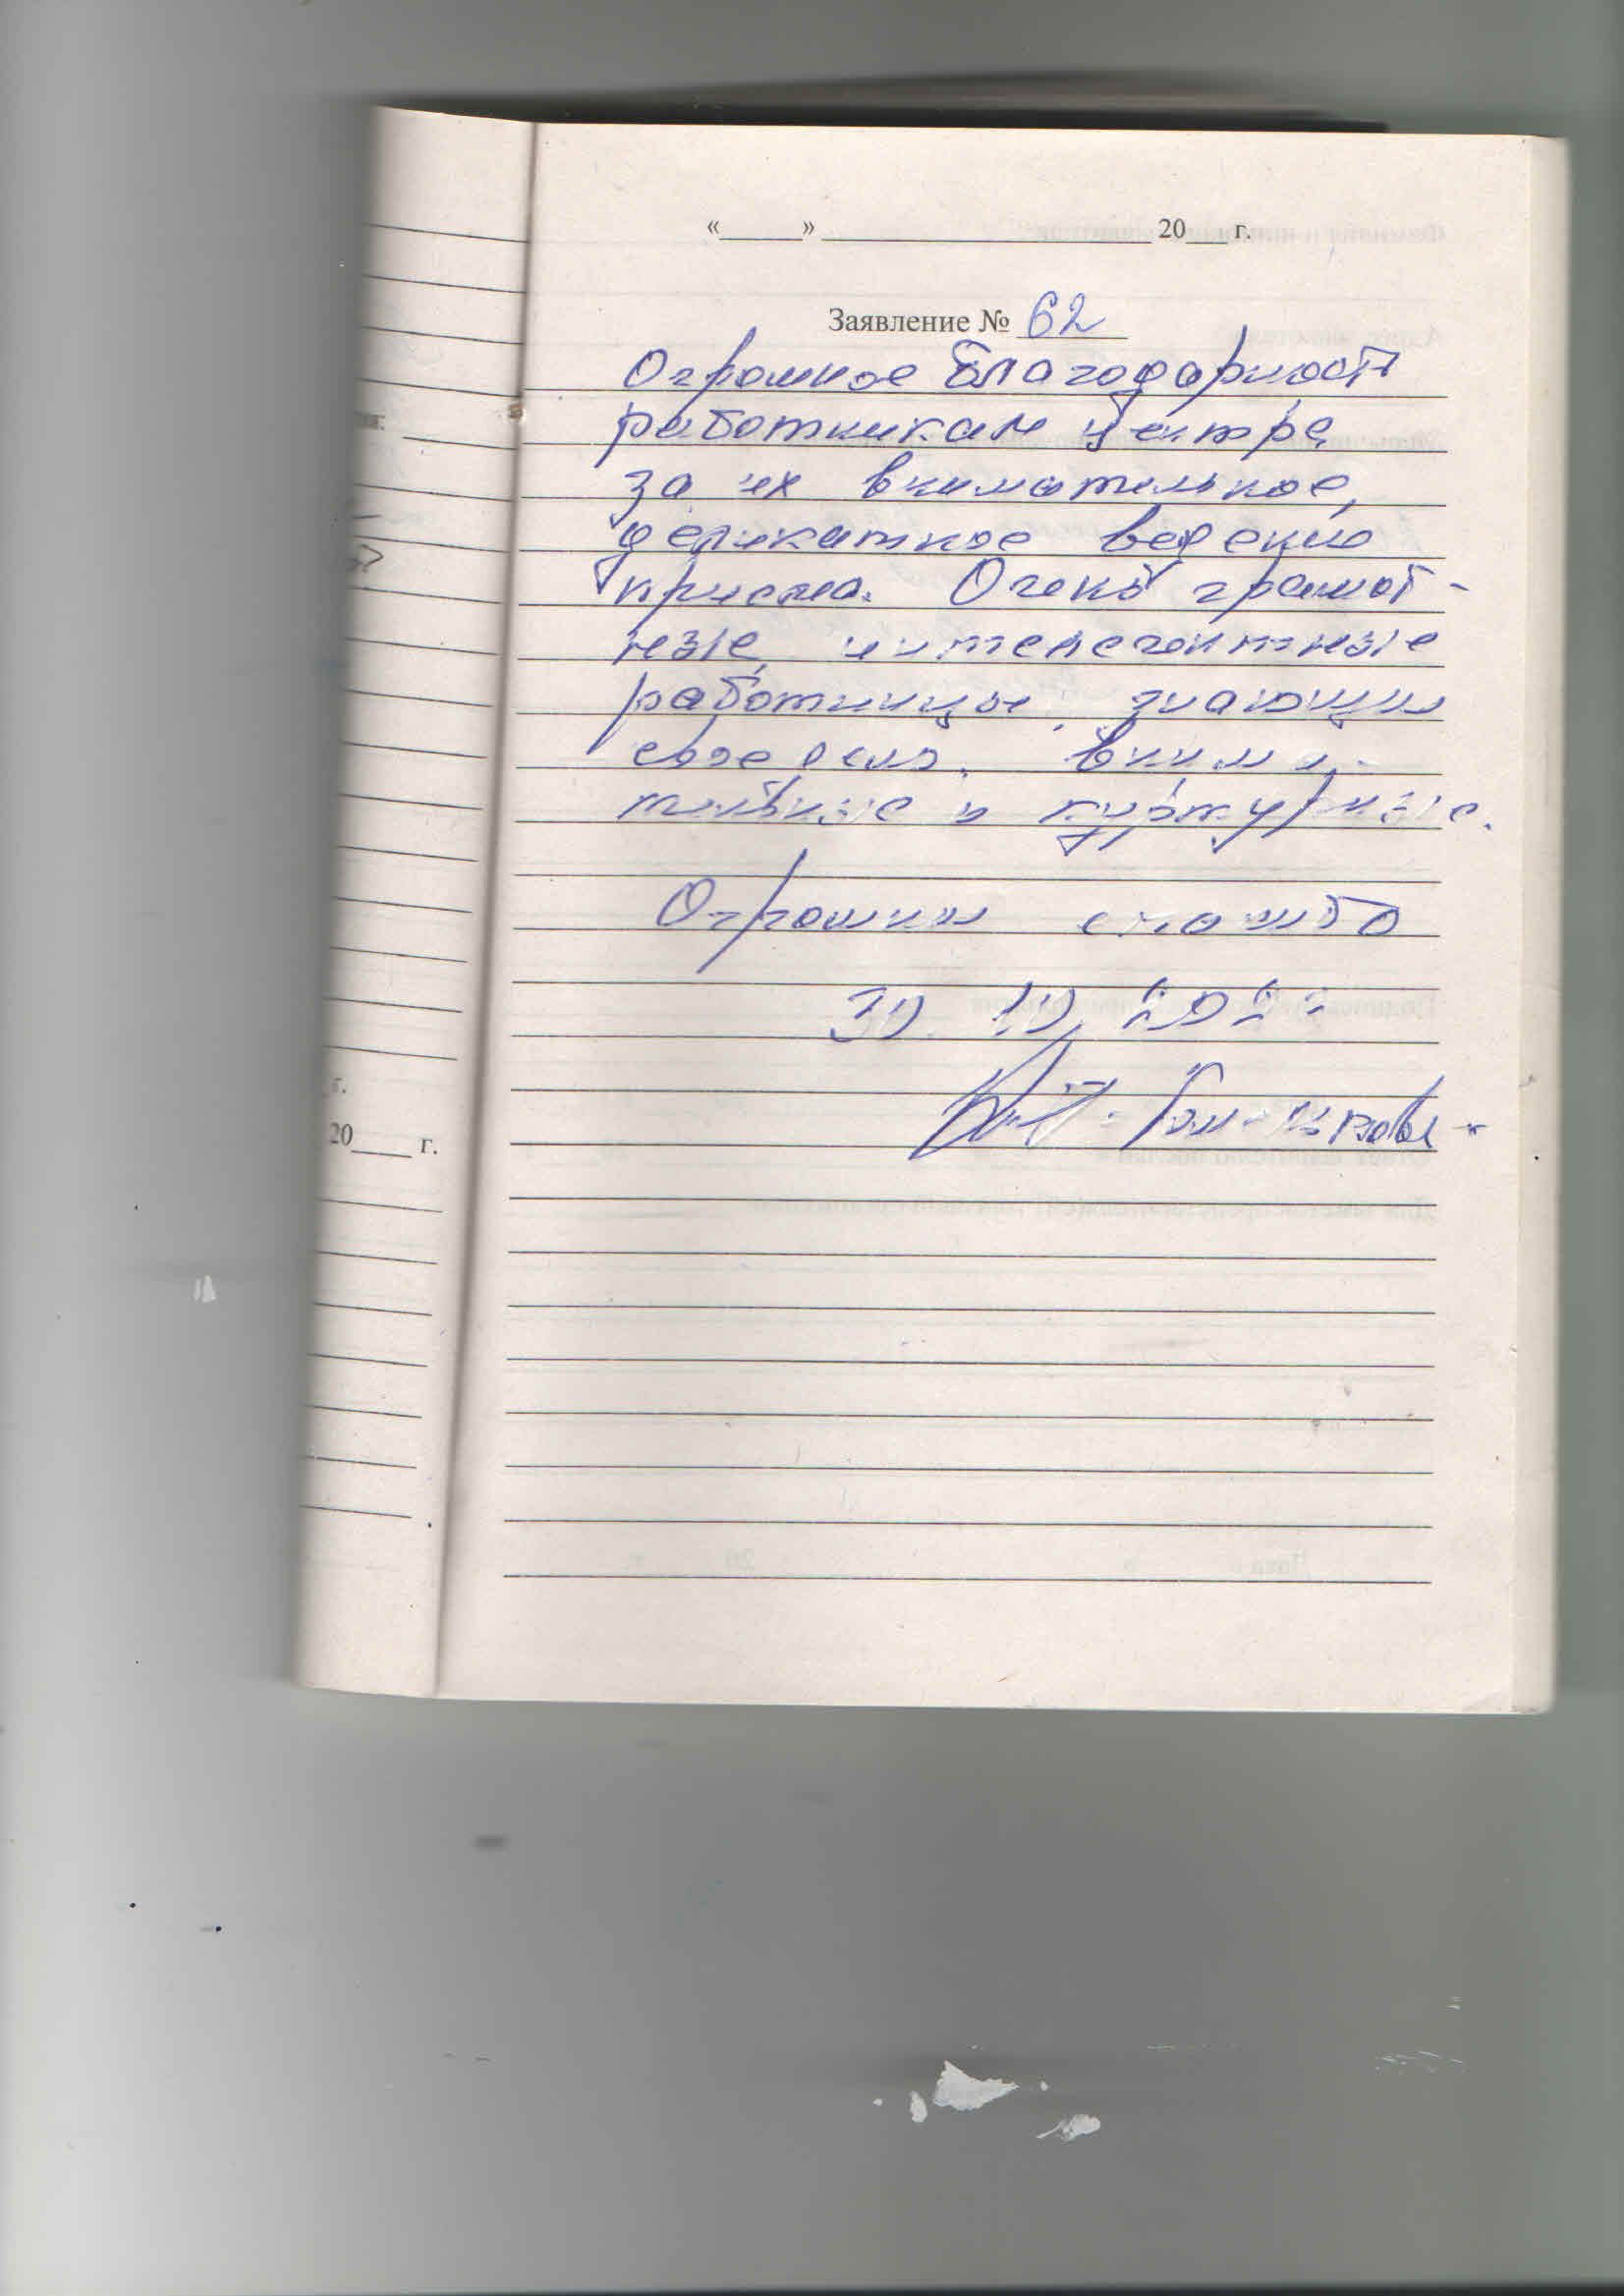 «______» ________________________ 20___ г.
Заявление № 62
Огромное благодарность
работникам центра
за их внимательное,
деликатное ведение
приема. Очень грамот-
ные, интелегентные
работницы, знающии
свое дело. Внима-
тельные и культурные.
Огромни спасибо
30. 10, 202
г.
20____ г.